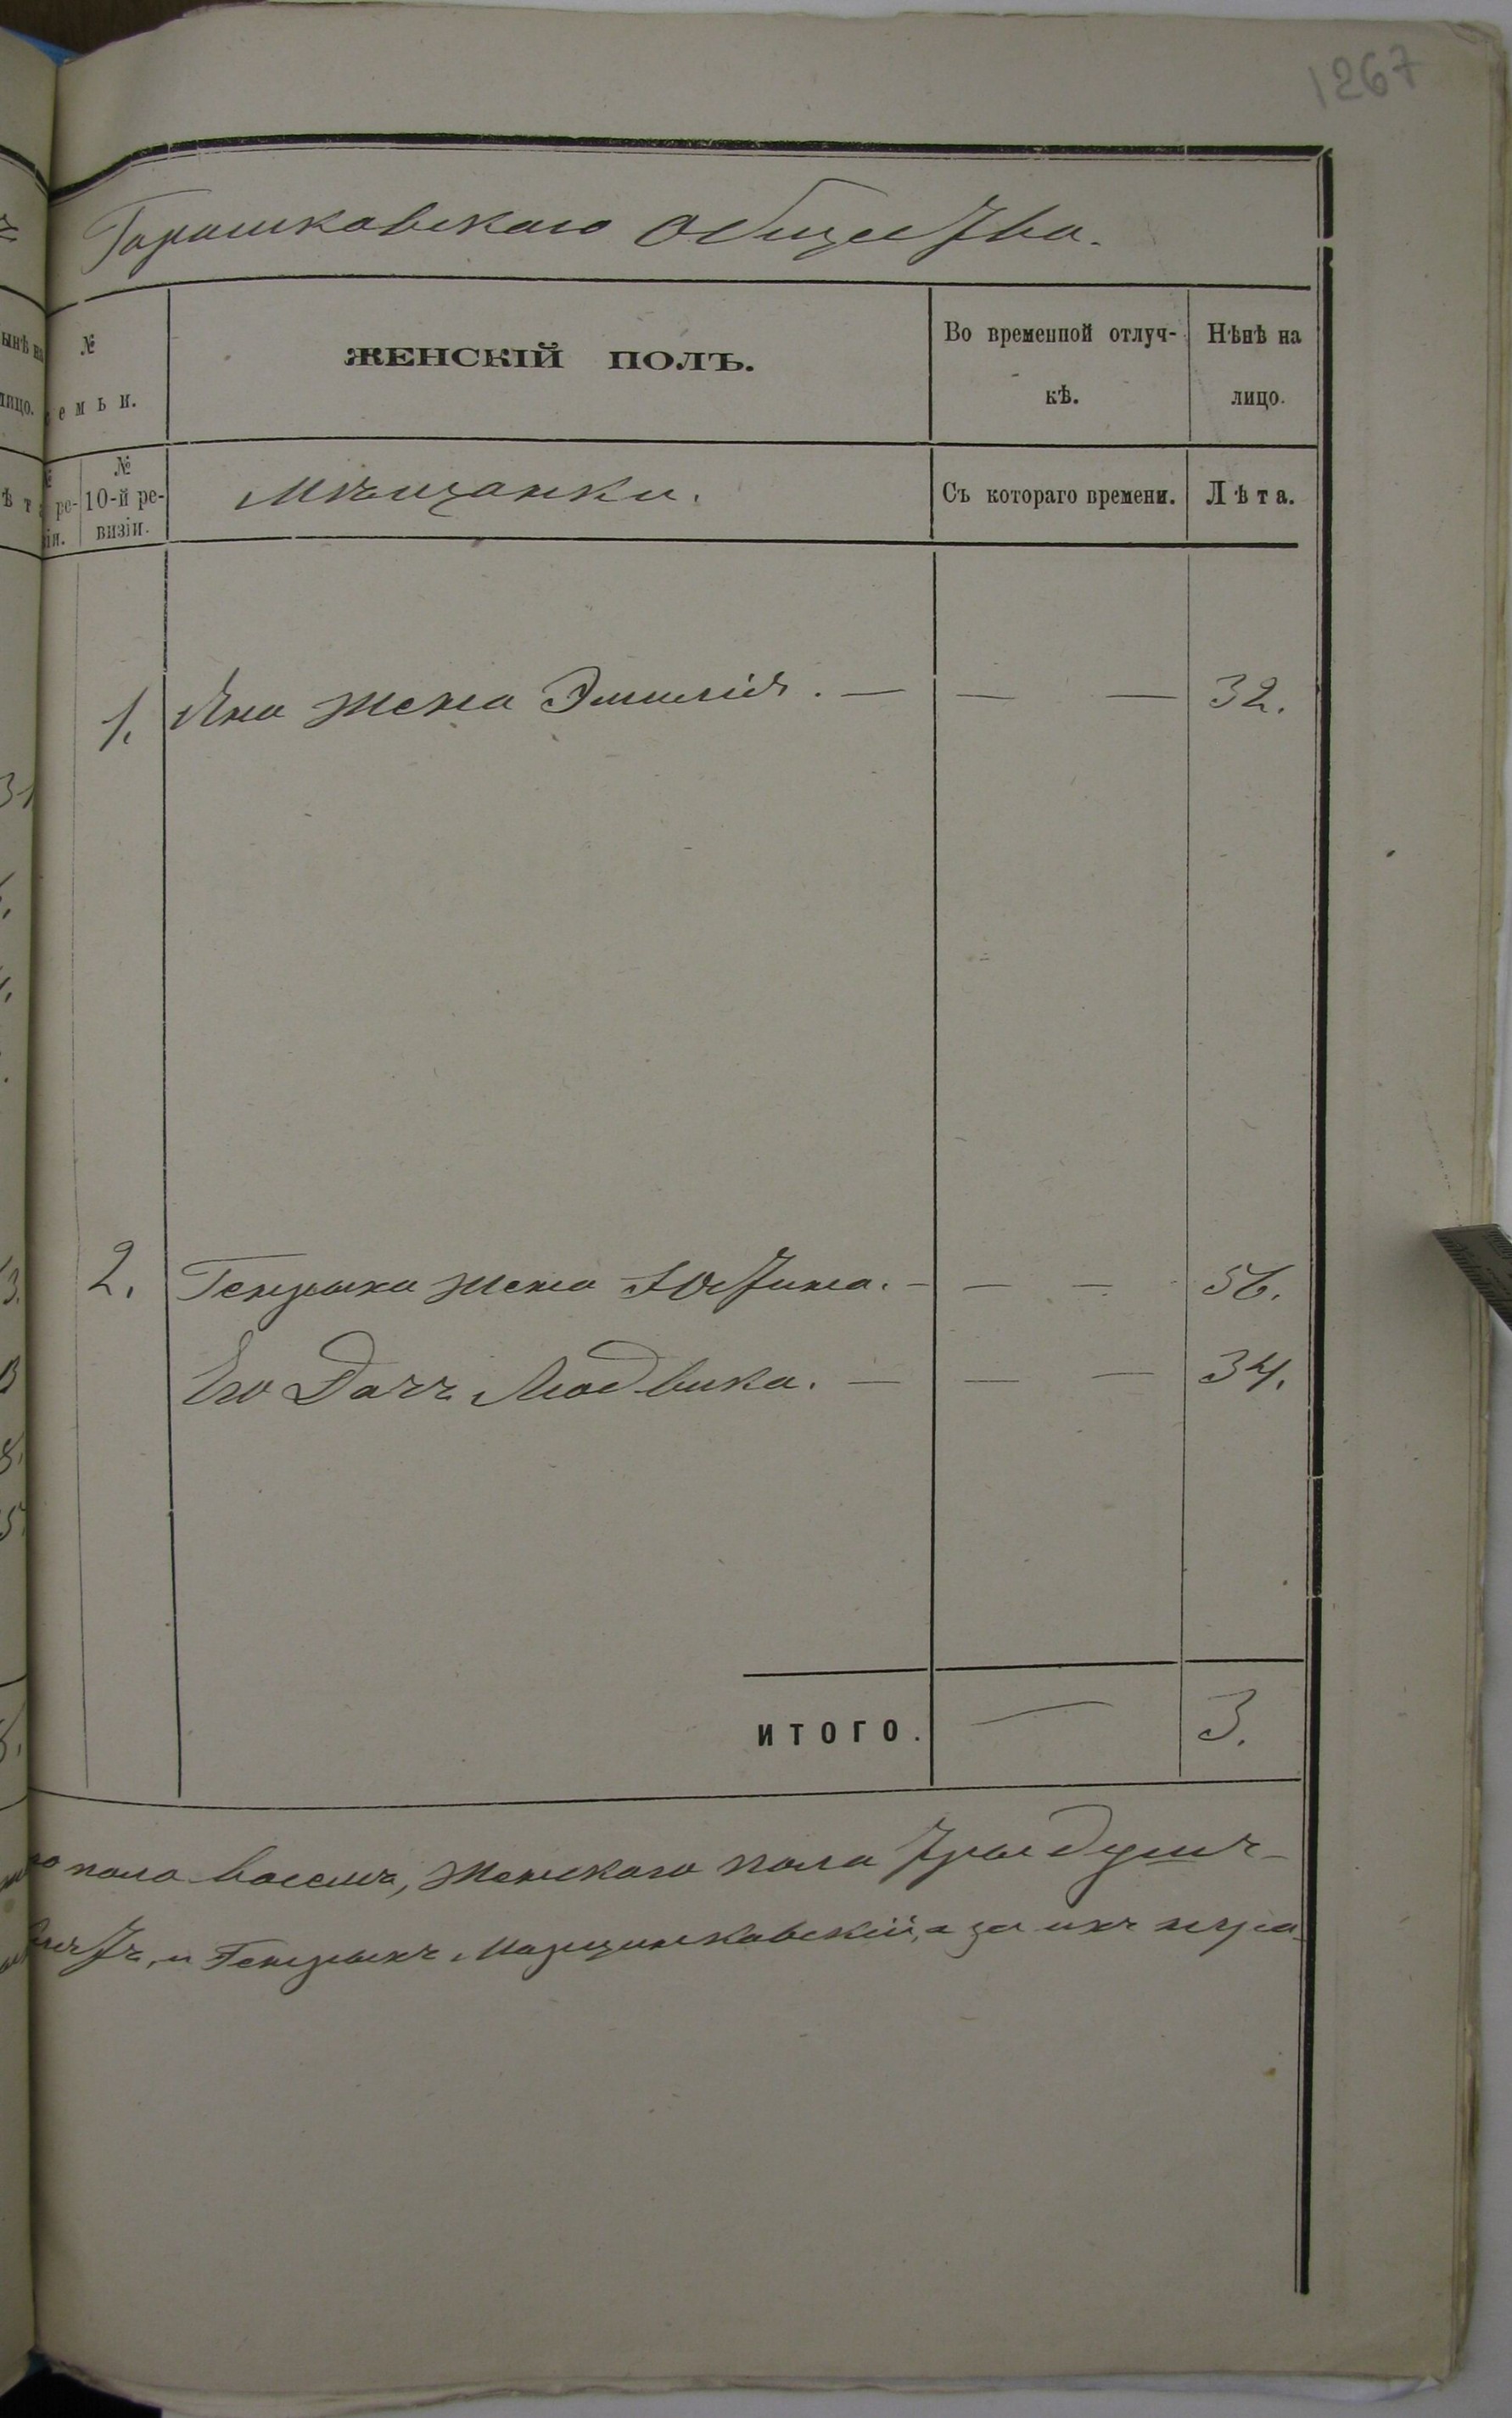 1267
Горошковскаго Общества.
№
емьи.
ЖЕНСКІЙ ПОЛЪ.
Во временной отлуч-
кѣ.
Нѣнѣ на
лицо.
ре-
№
10-й ре-
визіи.
Мѣщанки.
Съ котораго времени.
Лѣта.
1. Яна жена Эмилія. — — — 32.
2. Генрыка жена Юстина. — — — 56.
Его Дочь Людвика. — — — 34.
ИТОГО. — 3.
пола восемь, женскаго пола три душъ
и Генрыкъ а за ихъ негра-